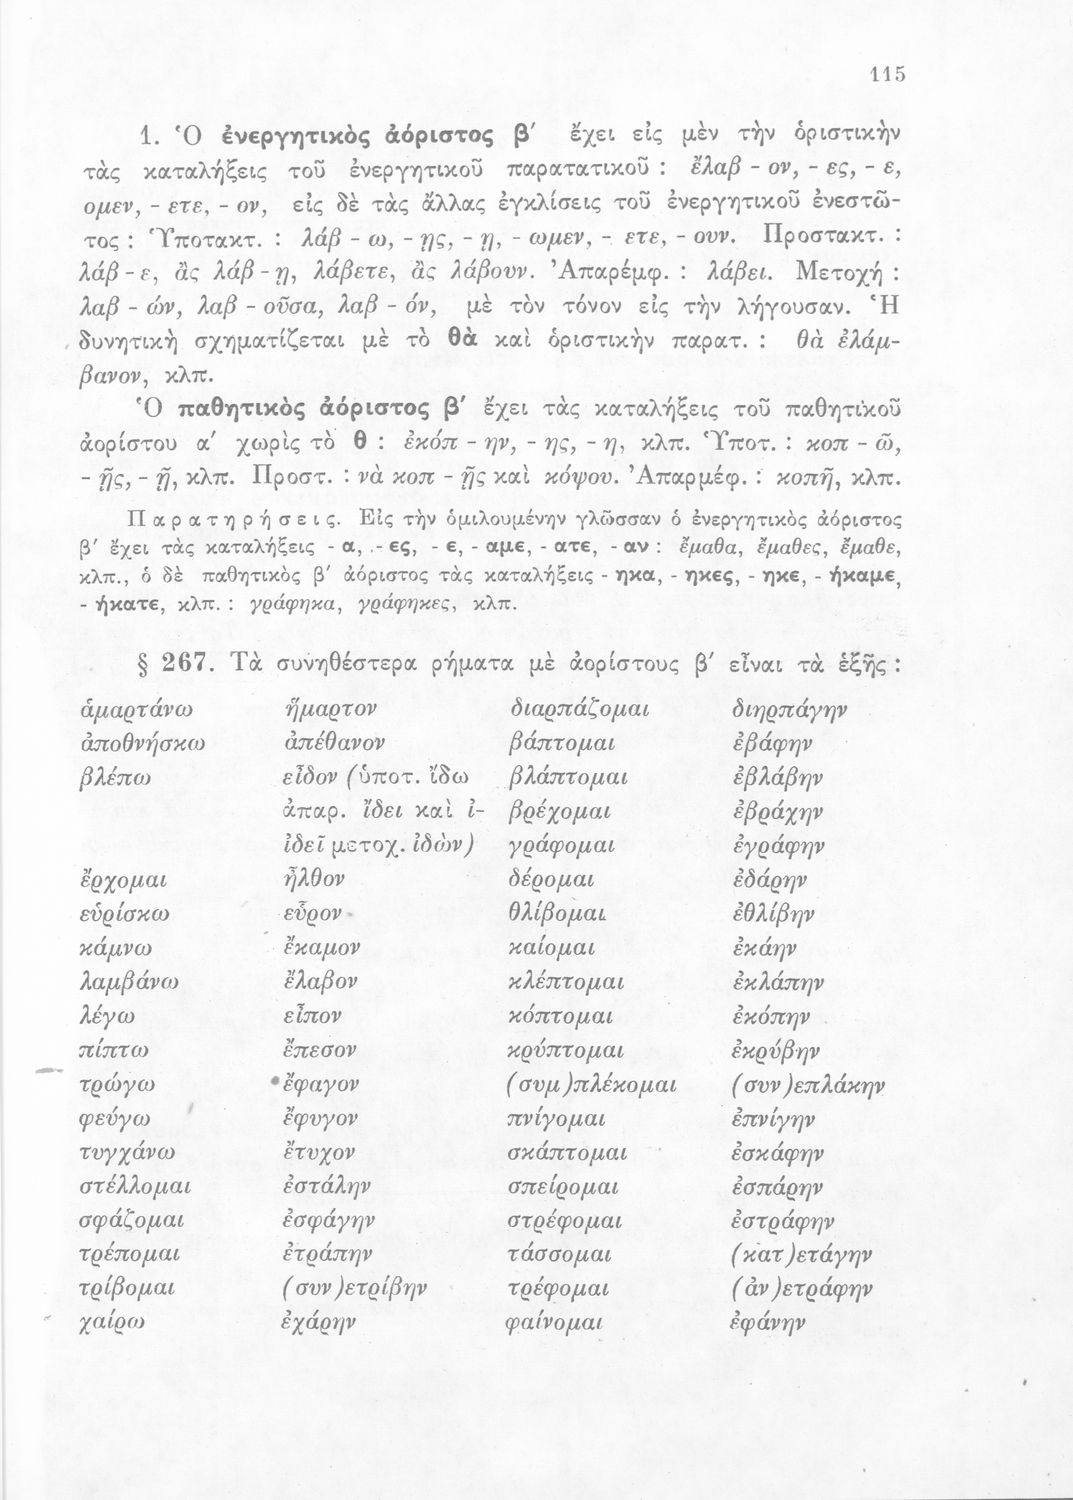 115
1. Ὁ ἐνεργητικὸς ἀόριστος β′ ἔχει εἰς μὲν τὴν ὁριστικὴν
τὰς καταλήξεις τοῦ ἐνεργητικοῦ παρατατικοῦ : ἔλαβ - ον, - ες, - ε,
ομεν, - ετε, - ον, εἰς δὲ τὰς ἄλλας ἐγκλίσεις τοῦ ἐνεργητικοῦ ἐνεστῶ-
τος : Ὑποτακτ. : λάβ - ω, - ῃς, - ῃ, - ωμεν, - ετε, - ουν. Προστακτ. :
λάβ - ε, ἂς λάβ - ῃ, λάβετε, ἂς λάβουν. Ἀπαρέμφ. : λάβει. Μετοχή :
λαβ - ών, λαβ - οῦσα, λαβ - όν, μὲ τὸν τόνον εἰς τὴν λήγουσαν. Ἡ
δυνητικὴ σχηματίζεται μὲ τὸ θὰ καὶ ὁριστικὴν παρατ. : θὰ ἐλάμ-
βανον, κλπ.
Ὁ παθητικὸς ἀόριστος β′ ἔχει τὰς καταλήξεις τοῦ παθητικοῦ
ἀορίστου α′ χωρὶς τὸ θ : ἐκόπ - ην, - ης, - η, κλπ. Ὑποτ. : κοπ - ῶ,
- ῇς, - ῇ, κλπ. Προστ. : νὰ κοπ - ῇς καὶ κόψου. Ἀπαρμέφ. : κοπῆ, κλπ.
Παρατηρήσεις. Εἰς τὴν ὁμιλουμένην γλῶσσαν ὁ ἐνεργητικὸς ἀόριστος
β′ ἔχει τὰς καταλήξεις - α, - ες, - ε, - αμε, - ατε, - αν : ἔμαθα, ἔμαθες, ἔμαθε,
κλπ., ὁ δὲ παθητικὸς β′ ἀόριστος τὰς καταλήξεις - ηκα, - ηκες, - ηκε, - ήκαμε,
- ήκατε, κλπ. : γράφηκα, γράφηκες, κλπ.
§ 267. Τὰ συνηθέστερα ρήματα μὲ ἀορίστους β′ εἶναι τὰ ἑξῆς :
ἁμαρτάνω ἥμαρτον διαρπάζομαι διηρπάγην
ἀποθνήσκω ἀπέθανον βάπτομαι ἐβάφην
βλέπω εἶδον (ὑποτ. ἴδω βλάπτομαι ἐβλάβην
ἀπαρ. ἴδει καὶ ἰ- βρέχομαι ἐβράχην
ἰδεῖ μετοχ. ἰδὼν) γράφομαι ἐγράφην
ἔρχομαι ἦλθον δέρομαι ἐδάρην
εὑρίσκω εὗρον θλίβομαι ἐθλίβην
κάμνω ἔκαμον καίομαι ἐκάην
λαμβάνω ἔλαβον κλέπτομαι ἐκλάπην
λέγω εἶπον κόπτομαι ἐκόπην
πίπτω ἔπεσον κρύπτομαι ἐκρύβην
τρώγω ἔφαγον (συμ)πλέκομαι (συν)επλάκην
φεύγω ἔφυγον πνίγομαι ἐπνίγην
τυγχάνω ἔτυχον σκάπτομαι ἐσκάφην
στέλλομαι ἐστάλην σπείρομαι ἐσπάρην
σφάζομαι ἐσφάγην στρέφομαι ἐστράφην
τρέπομαι ἐτράπην τάσσομαι (κατ)ετάγην
τρίβομαι (συν)ετρίβην τρέφομαι (ἀν)ετράφην
χαίρω ἐχάρην φαίνομαι ἐφάνην